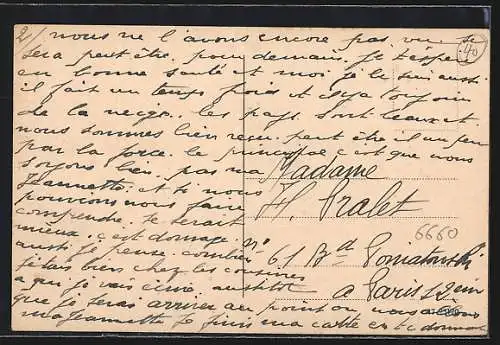 2/ nous ne l'avons encore pas vu se
sera peut être pour demain. Je t'espère
en bonne santé et moi je le suis aussi
il fait un temps froid et il y a toujours
de la neige. les pays sont beaux et
nous sommes bien reçu. peut être il un peu
par la force. le principal c'est que nous
soyons bien. pas ma
Jeannette. et si nous
pouvions nous faire
comprendre. Je serait
mieux. c'est domage.
aussi je pense combien
j'étais bien chez les cousines
a qui je vais écrire aussitôt
que je serai arriver au point ou nous allons
ma Jeannette Je finis ma carte en te donnant
Madame
H. Pralet
n° 61 Bd Poniatowski
a Paris 12 em
6660
40